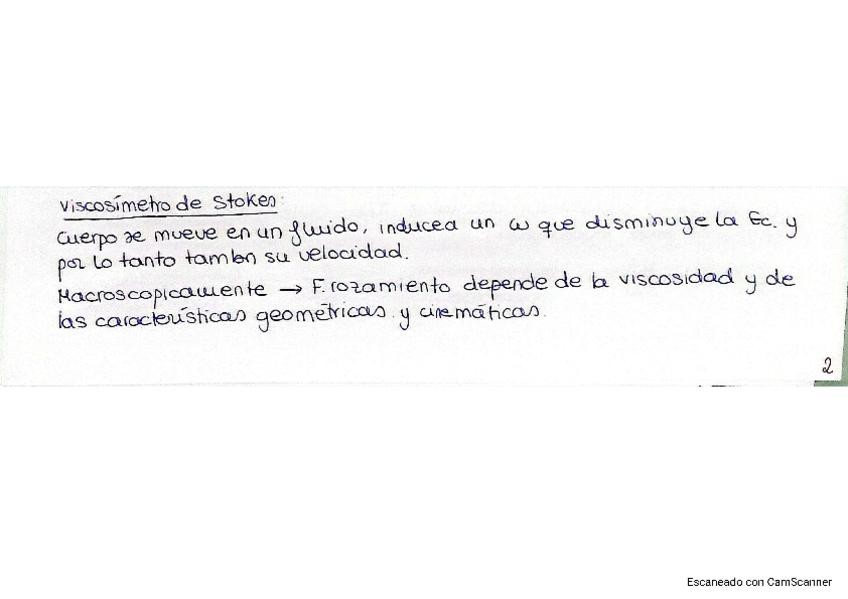 Viscosímetro de Stokes:
Cuerpo se mueve en un fluido, inducea un ω que disminuye la Ec. y
por lo tanto tambn su velocidad.
Macroscopicamente → F. rozamiento depende de la viscosidad y de
las características geométricas y cinemáticas.
2
Escaneado con CamScanner